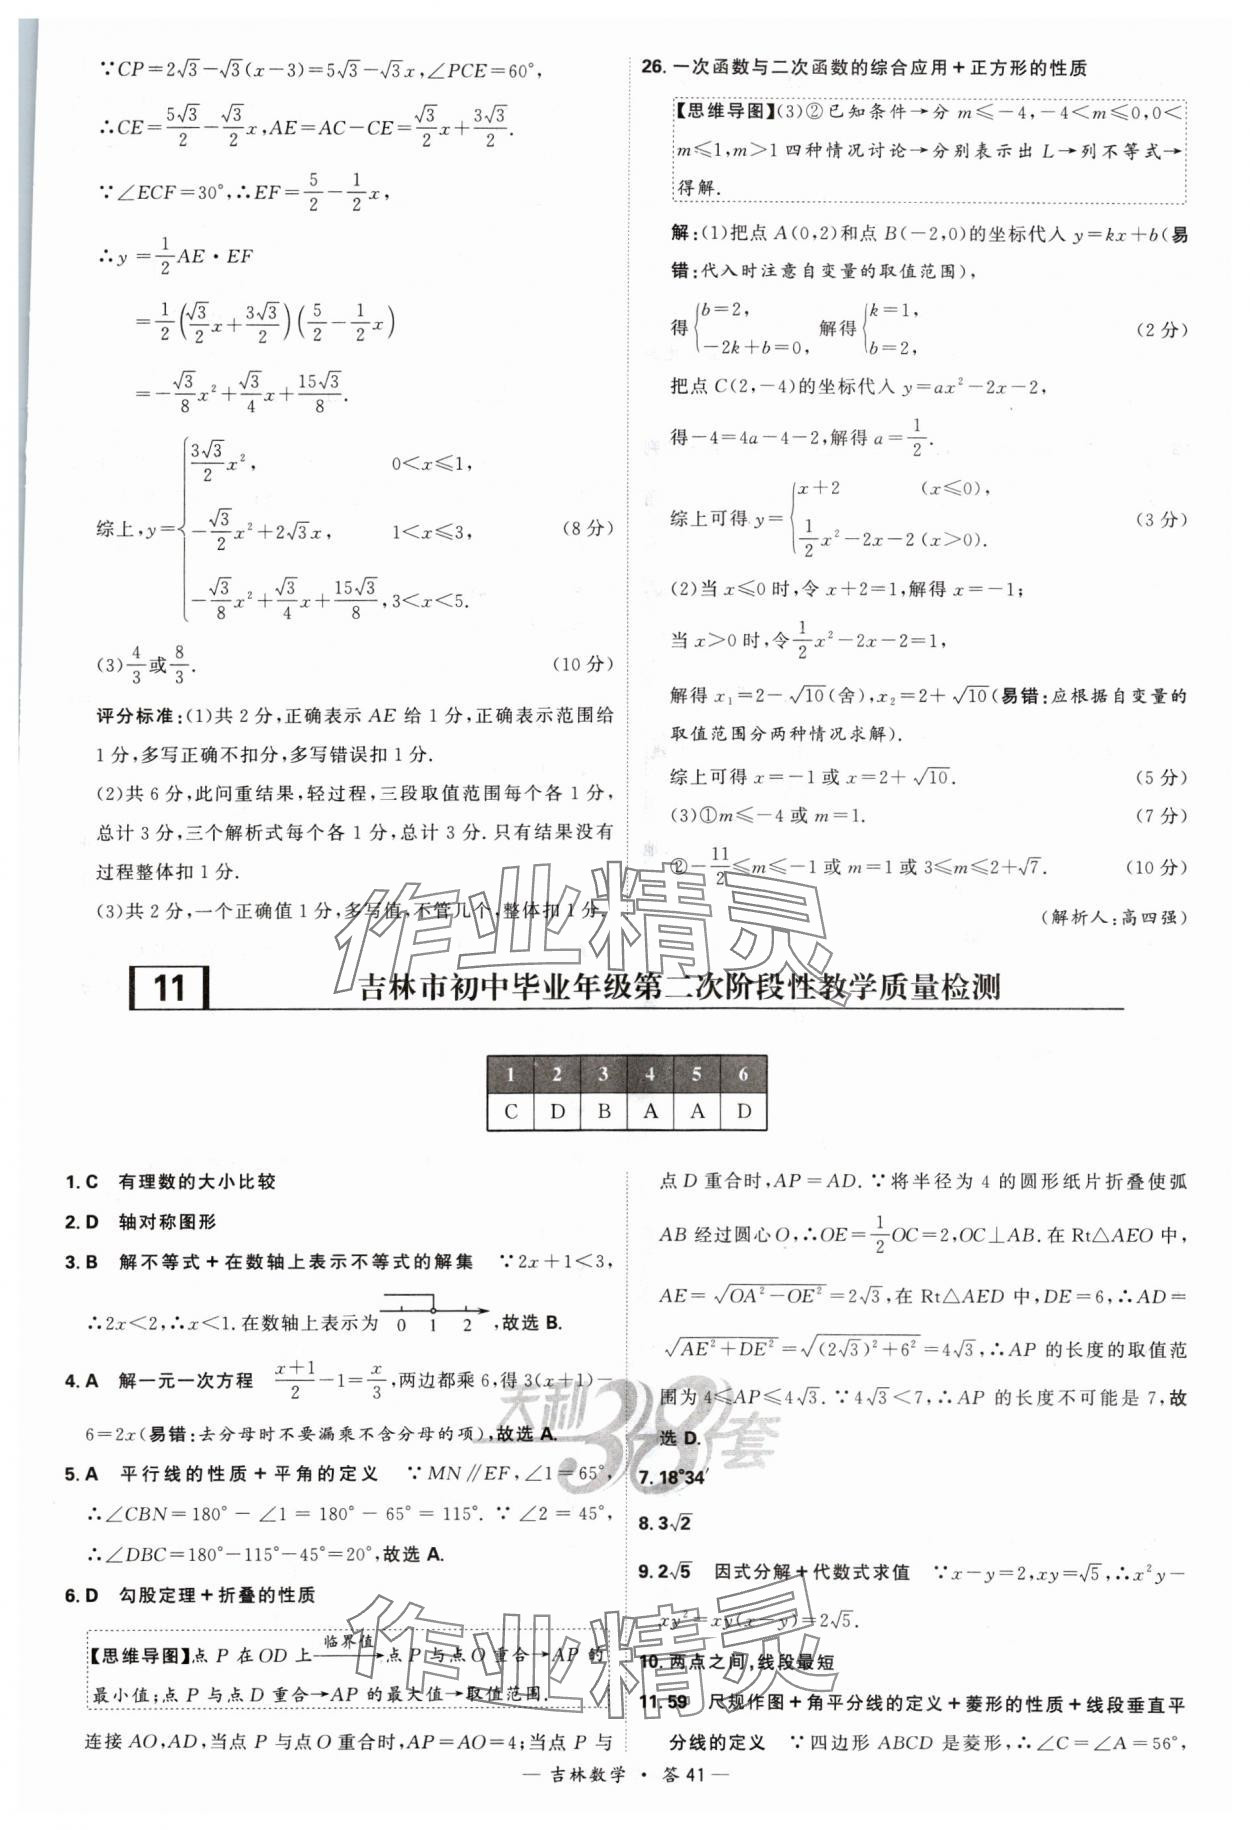 ∵CP=2√3-√3(x-3)=5√3-√3x,∠PCE=60°,
∴CE=5√3/2-√3/2x,AE=AC-CE=√3/2x+3√3/2.
∵∠ECF=30°,∴EF=5/2-1/2x,
∴y=1/2AE·EF
=1/2(√3/2x+3√3/2)(5/2-1/2x)
=-√3/8x²+√3/4x+15√3/8.
综上,y={3√3/2x², 0<x≤1,
-√3/2x²+2√3x, 1<x≤3, (8分)
-√3/8x²+√3/4x+15√3/8,3<x<5.
(3)4/3或8/3. (10分)
评分标准:(1)共2分,正确表示AE给1分,正确表示范围给
1分,多写正确不扣分,多写错误扣1分.
(2)共6分,此问重结果,轻过程,三段取值范围每个各1分,
总计3分,三个解析式每个各1分,总计3分.只有结果没有
过程整体扣1分.
(3)共2分,一个正确值1分,多写值,不管几个,整体扣1分.
26.一次函数与二次函数的综合应用+正方形的性质
【思维导图】(3)②已知条件→分m≤-4,-4<m≤0,0<
m≤1,m>1四种情况讨论→分别表示出L→列不等式→
得解.
解:(1)把点A(0,2)和点B(-2,0)的坐标代入y=kx+b(易
错:代入时注意自变量的取值范围),
得{b=2, -2k+b=0, 解得{k=1, b=2, (2分)
把点C(2,-4)的坐标代入y=ax²-2x-2,
得-4=4a-4-2,解得a=1/2.
综上可得y={x+2 (x≤0), 1/2x²-2x-2(x>0). (3分)
(2)当x≤0时,令x+2=1,解得x=-1;
当x>0时,令1/2x²-2x-2=1,
解得x₁=2-√10(舍),x₂=2+√10(易错:应根据自变量的
取值范围分两种情况求解).
综上可得x=-1或x=2+√10. (5分)
(3)①m≤-4或m=1. (7分)
②-11/2≤m≤-1或m=1或3≤m≤2+√7. (10分)
(解析人:高四强)
11 吉林市初中毕业年级第二次阶段性教学质量检测
1 2 3 4 5 6
C D B A A D
1.C 有理数的大小比较
2.D 轴对称图形
3.B 解不等式+在数轴上表示不等式的解集 ∵2x+1<3,
∴2x<2,∴x<1.在数轴上表示为 0 1 2 ,故选B.
4.A 解一元一次方程 (x+1)/2-1=x/3,两边都乘6,得3(x+1)-
6=2x(易错:去分母时不要漏乘不含分母的项),故选A.
5.A 平行线的性质+平角的定义 ∵MN∥EF,∠1=65°,
∴∠CBN=180°-∠1=180°-65°=115°.∵∠2=45°,
∴∠DBC=180°-115°-45°=20°,故选A.
6.D 勾股定理+折叠的性质
【思维导图】点P在OD上 临界值→点P与点O重合→AP的
最小值;点P与点D重合→AP的最大值→取值范围.
连接AO,AD,当点P与点O重合时,AP=AO=4;当点P与
点D重合时,AP=AD.∵将半径为4的圆形纸片折叠使弧
AB经过圆心O,∴OE=1/2OC=2,OC⊥AB.在Rt△AEO中,
AE=√(OA²-OE²)=2√3,在Rt△AED中,DE=6,∴AD=
√(AE²+DE²)=√((2√3)²+6²)=4√3,∴AP的长度的取值范
围为4≤AP≤4√3.∵4√3<7,∴AP的长度不可能是7,故
选D.
7.18°34′
8.3√2
9.2√5 因式分解+代数式求值 ∵x-y=2,xy=√5,∴x²y-
xy²=xy(x-y)=2√5.
10.两点之间,线段最短
11.59 尺规作图+角平分线的定义+菱形的性质+线段垂直平
分线的定义 ∵四边形ABCD是菱形,∴∠C=∠A=56°,
— 吉林数学·答41 —
作业精灵
天利38套
作业精灵